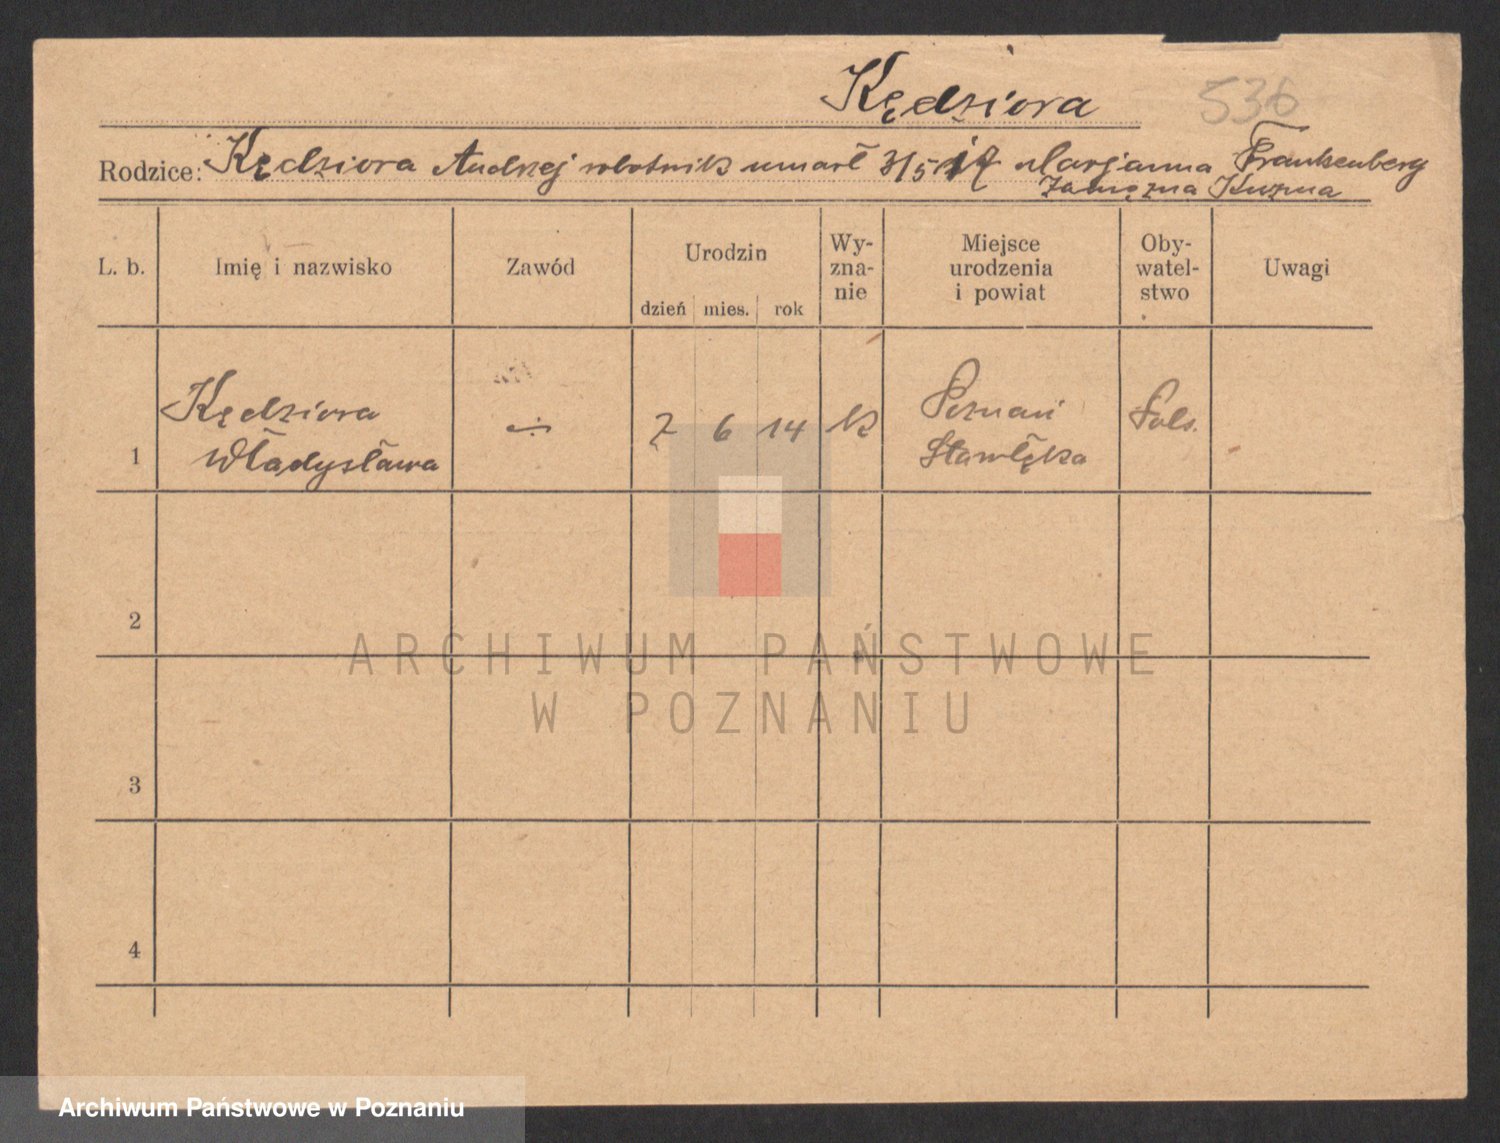 Kędziora 536
Rodzice: Kędziora Andrzej robotnik umarł 3/5 17 Marjanna Frankenberg
zamężna Kuzma
L. b. Imię i nazwisko Zawód Urodzin dzień mies. rok Wy-
zna-
nie Miejsce
urodzenia
i powiat Oby-
watel-
stwo Uwagi
1 Kędziora
Władysława ÷ 7 6 14 K Poznań
Stawłęka Pols.
2
3
4
ARCHIWUM PAŃSTWOWE
W POZNANIU
Archiwum Państwowe w Poznaniu